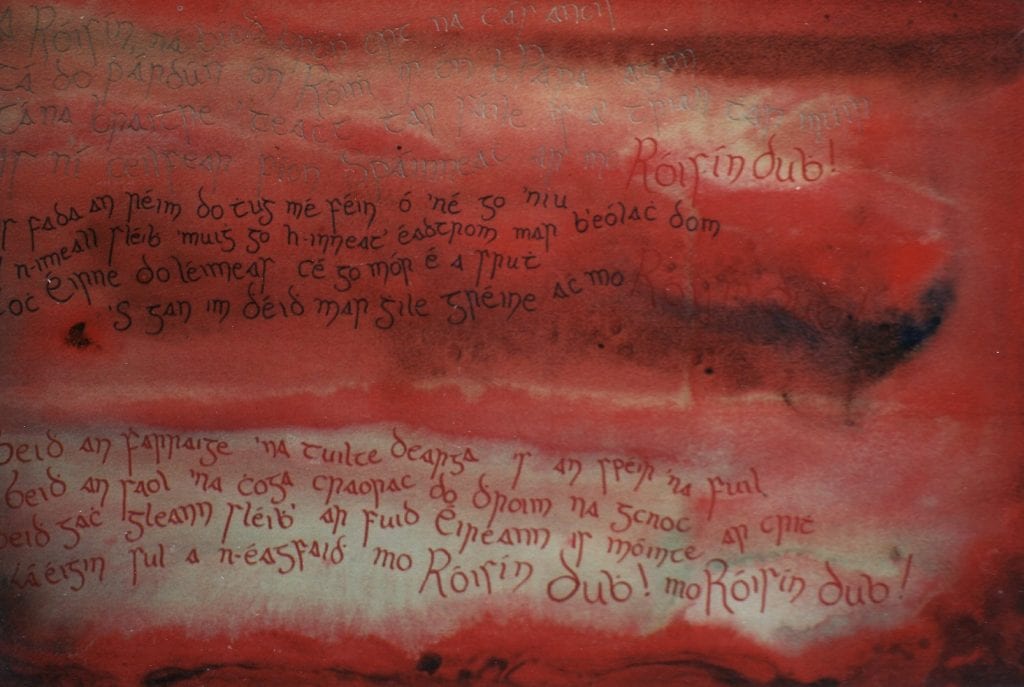 A Róisín, na brón ort na cár anois
tá do párdún ón Róim is ón bPápa agam
tá na bráiṫre 'teaċt tar sáile is a triall tar muir
is ní ceilfear fíon Spáinneaċ ar mo Róisín duḃ!
is fada an réim do ṫug mé féin ó 'né go 'niu
n-imeall sléiḃ 'muiġ go h-inneat' éadtrom mar b'eólaċ dom
loċ Éirne do léimeas cé go mór é a sruṫ
'S gan im déiḋ mar ġile gréine aċ mo Róisín duḃ
beiḋ an ḟarraige 'na tuilte dearga is an spéir 'na fuil
beiḋ an saol 'na ċoga craoraċ do droim na gcnoc
beiḋ gaċ gleann sléiḃ' ar fuid Éireann is móinte ar criṫ
lá éigin sul a n-éagfaiḋ mo Róisín duḃ! mo Róisín duḃ!